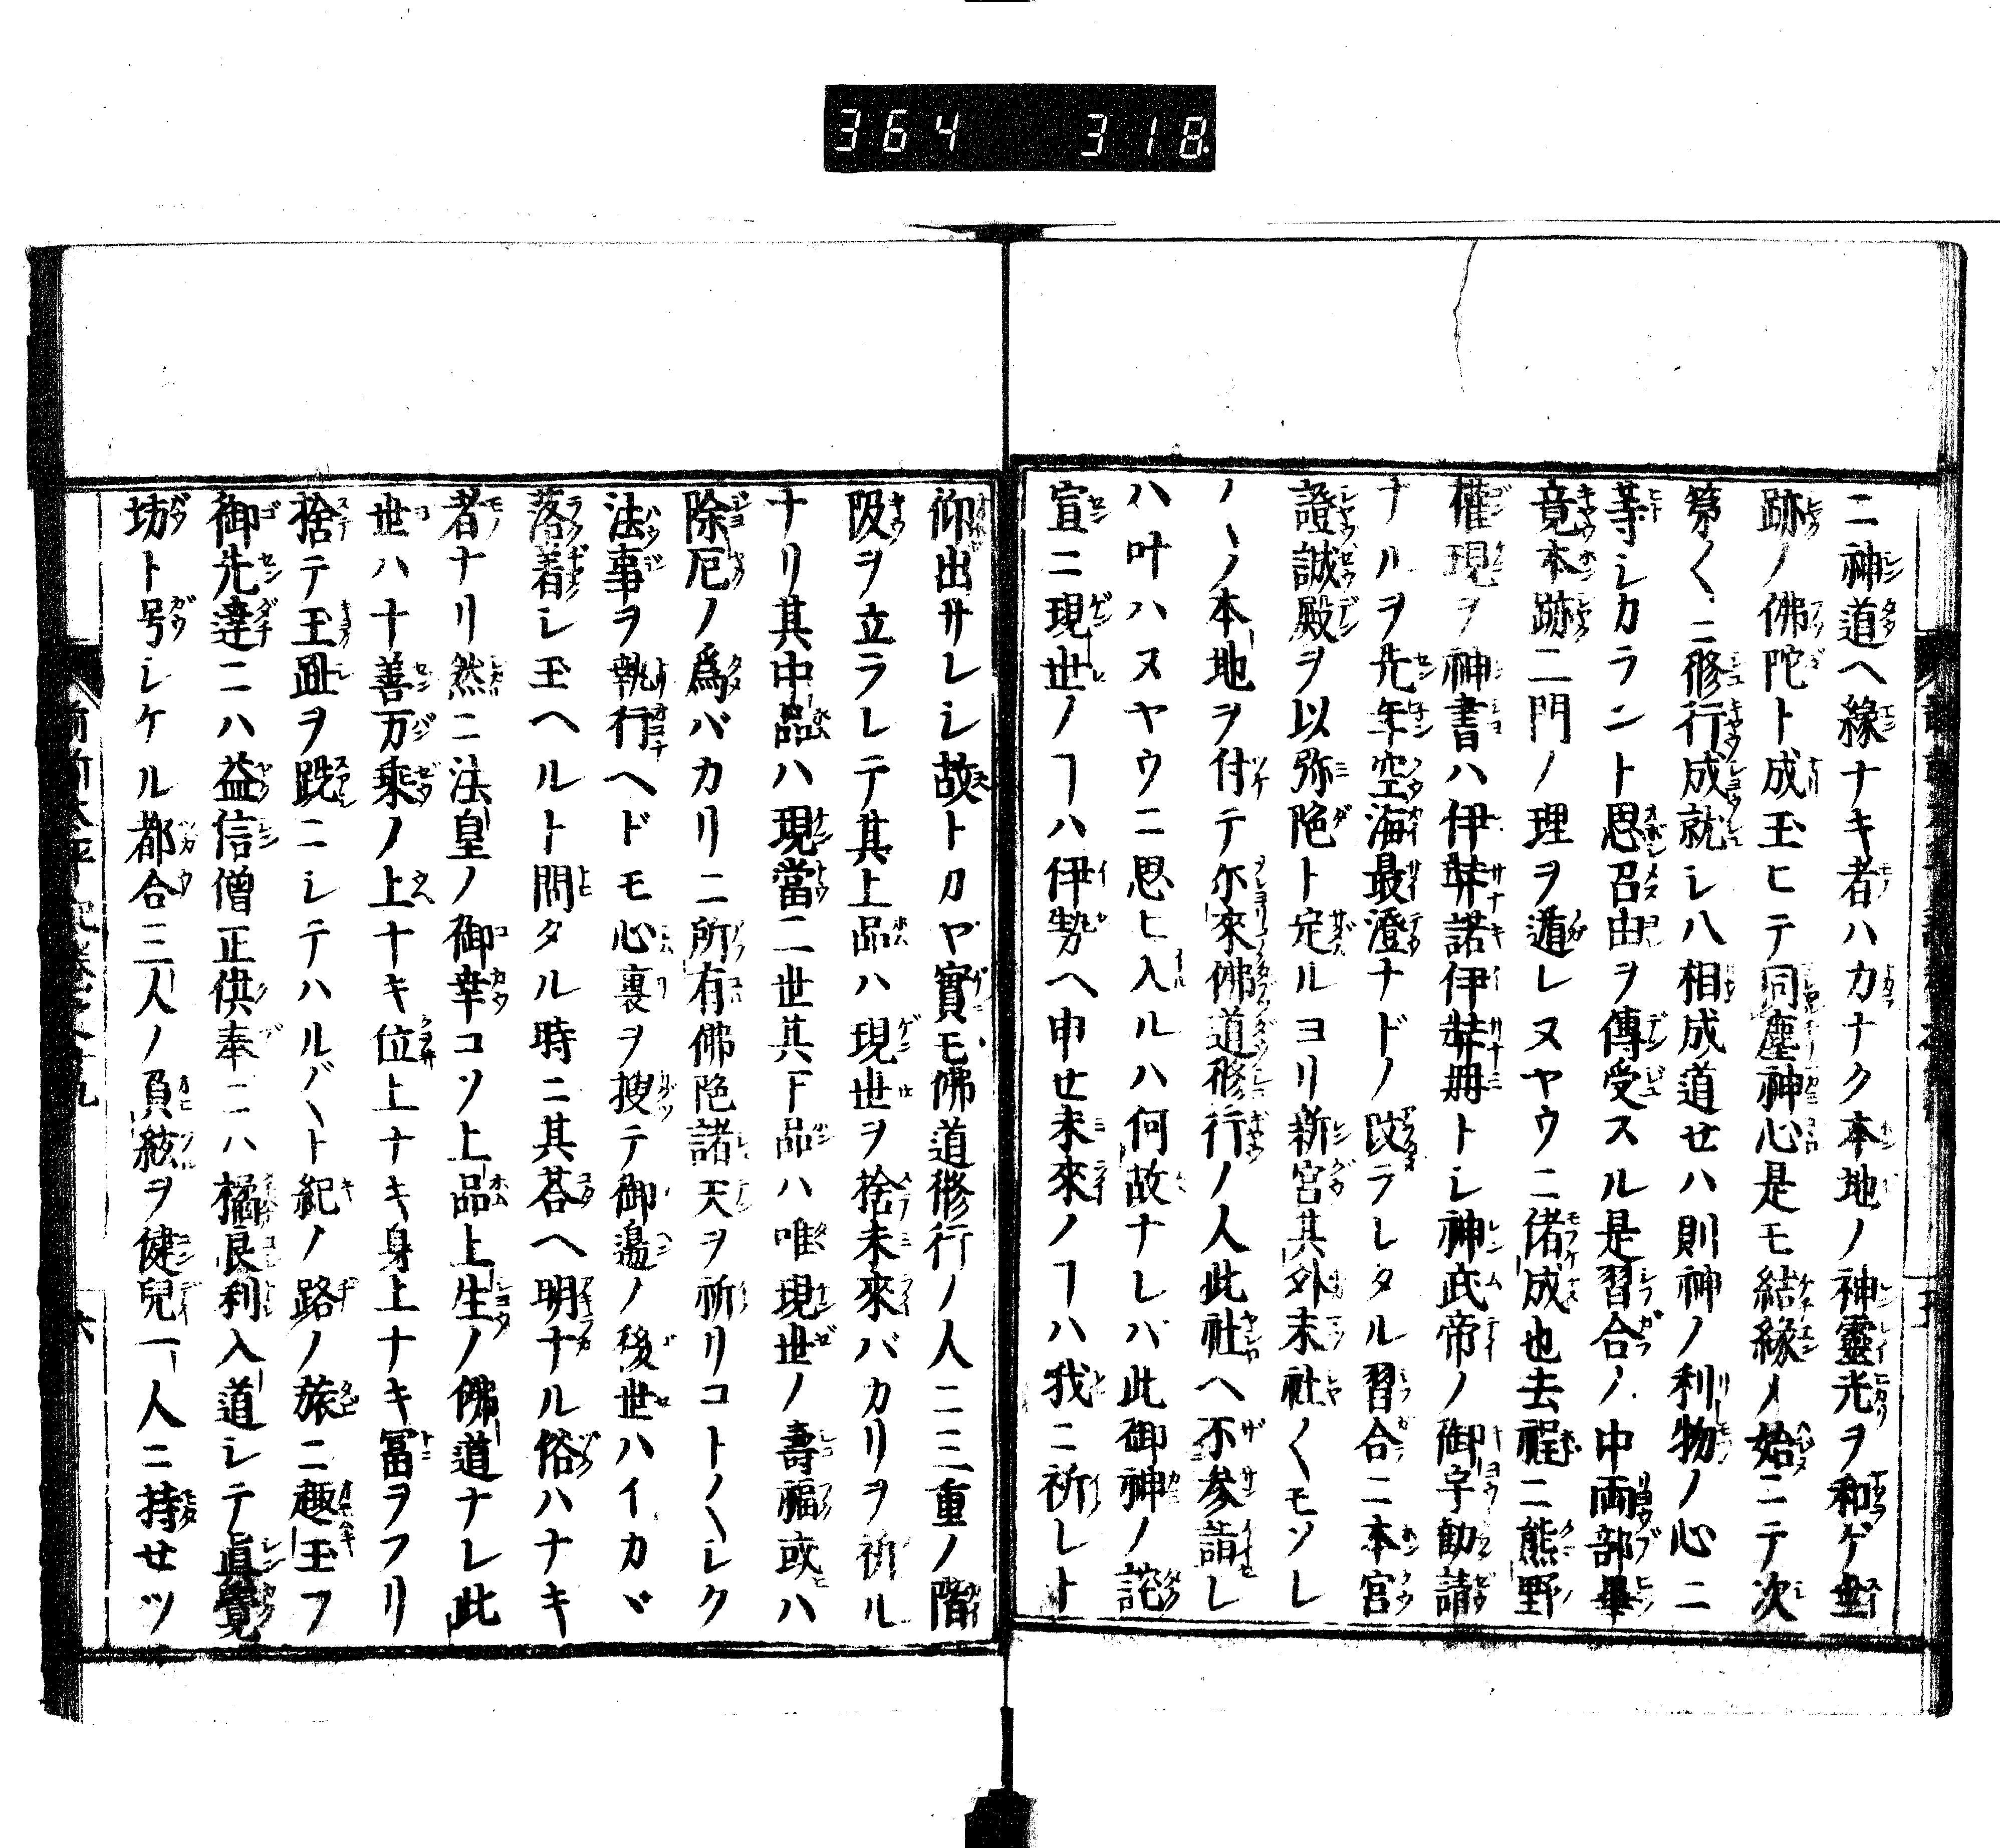 364 318
ニ神道ヘ縁ナキ者ハカナク本地ノ神靈光ヲ和ゲ垂
跡ノ佛陀ト成玉ヒテ同塵神心是モ結縁ノ始ニテ次
第〱ニ修行成就シ八相成道セハ則神ノ利物ノ心ニ
等シカラント思召由ヲ傳受スル是習合ノ中両部畢
竟本跡二門ノ理ヲ遁レヌヤウニ儲成也去程ニ熊野
權現ヲ神書ハ伊弉諾伊弉冊トシ神武帝ノ御宇勧請
ナルヲ先年空海最澄ナドノ改ラレタル習合ニ本宮
證誠殿ヲ以弥陀ト定ルヨリ新宮其外末社〱モソレ
〱ノ本地ヲ付テ尓來佛道修行ノ人此社ヘ不参詣レ
ハ叶ハヌヤウニ思ヒ入ルハ何故ナレバ此御神ノ詫
宣ニ現世ノヿハ伊勢ヘ申せ未來ノヿハ我ニ祈レト
仰出サレシ故トカヤ實モ佛道修行ノ人ニ三重ノ階
級ヲ立ラレテ其上品ハ現世ヲ捨未來バカリヲ祈ル
ナリ其中品ハ現當二世其下品ハ唯現世ノ壽福或ハ
除厄ノ爲バカリニ所有佛陀諸天ヲ祈リコト〱シク
法事ヲ執行ヘドモ心裏ヲ捜テ御邉ノ後世ハイカヾ
落着シ玉ヘルト問タル時ニ其荅ヘ明ナル俗ハナキ
者ナリ然ニ法皇ノ御幸コソ上品上生ノ佛道ナレ此
世ハ十善万乘ノ上ナキ位上ナキ身上ナキ冨ヲフリ
捨テ玉趾ヲ跣ニシテハル〲ト紀ノ路ノ旅ニ趣玉フ
御先達ニハ益信僧正供奉ニハ橘良利入道シテ眞覺
坊ト号シケル都合三人ノ負絃ヲ健兒一人ニ持せツ
六